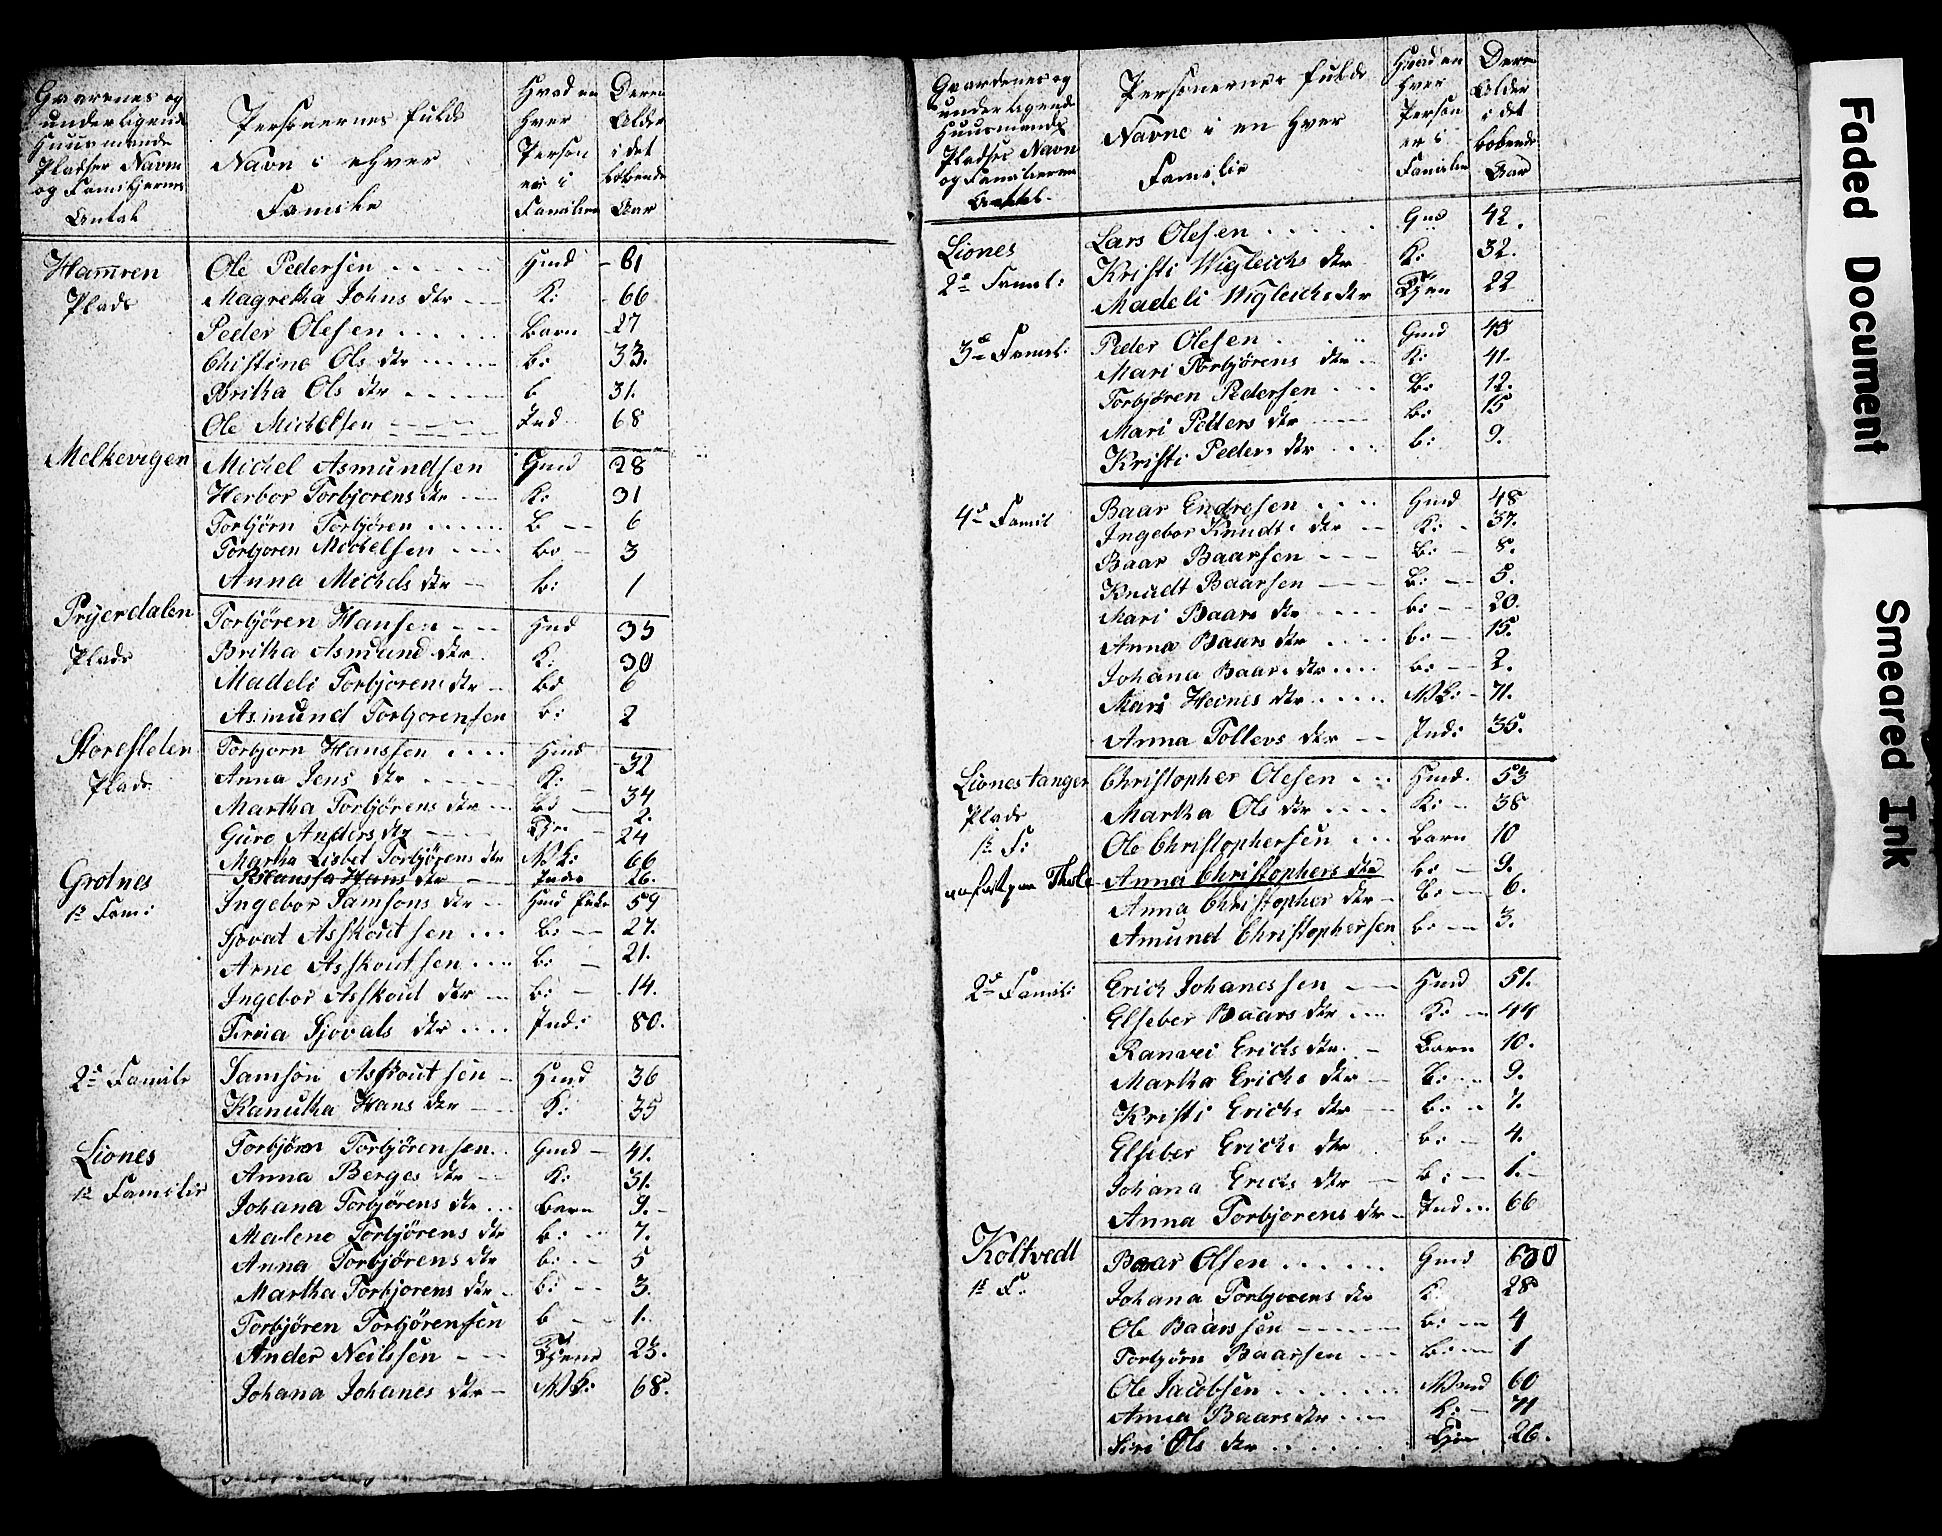 Gaarenes og
underligende
Huusmænds
Pladser Navne
og Familjernes
Antal
Personernes fulde
Navn i ehver
Familie
Hvad en
hver
Person
er i
Familien
Deres
Alder
i det
løbende
Aar
Hamren Ole Pedersen Hmd 61
Plads Magretha Johns dtr K: 66
Peder Olesen Barn 27
Christine Ols dtr b: 33.
Britha Ols dtr b 31.
Ole Michelsen Ind 68
Melkevigen Michel Asmundsen Gmd 28
Herbor Torbjorens dtr K: 31
Torbjörn Torbjören B 6
Torbjoren Michelsen b: 3
Anna Michels dtr b: 1
Pryerdalen Torbjören Hansen Hmd 35
Plads Britha Asmund dtr K: 30
Madeli Torbjorens dtr b: 6
Asmund Torbjorensen b: 2
Storesleten Torbjorn Hanssen Hmd 32
Plads Anna Jens dtr K: 34
Martha Torbjörens dtr b: 2.
Guro Anders dtr Tje. 24
Martha Lisbet Torbjörens dtr M K: 66
Hans dtr Inds 26.
Grotnes Ingebor Samsons dtr Hmd Enke 59
1e Fam: Sjovat Asskoutsen b: 27.
Arne Asskoutsen b: 21.
Ingebor Asskout dtr b: 14.
Sjovats dtr Ind: 80.
2e Famile Samson Asskoutsen Hmd 36
Kanutha Hans dtr K: 35
Liones Torbjörn Torbjörensen Gmd 41.
1e Familie Anna Berges dtr K: 31.
Johana Torbjörens dtr Barn 9.
Malene Torbjörens dtr b: 7.
Anna Torbjörens dtr b: 5
Martha Torbjorens dtr b: 3.
Torbjören Torbjörensen b 1.
Ander Neilssen Tjene 23.
Johana Johanes dtr M K: 68.
Gaardenes og
underligende
Huusmands
Pladser Navn
og Familiernes
Antal.
Personernes fulde
Navne i en hver
Familie
Hvad en
hver
Person
er i
Familien
Deres
Alder
i det
løbende
Aar
Liones Lars Olesen Gmd 42.
2e Famil: Kristi Wigleichs dtr K: 32.
Madeli Wigleichs dtr Tjen 22
3e Famil: Peder Olesen Gmd 45
Mari Torbjörens dtr K: 41.
Torbjören Pedersen B: 12.
Mari Petters dtr b: 15
Kristi Peders dtr b: 9.
4e Famil Baar Endresen Hmd 48
Ingebor Knudts dtr K: 37.
Baar Baarsen B: 8.
Knudt Baarsen B: 5.
Mari Baars dtr b: 20.
Anna Baars dtr b: 15.
Johana Baars dtr b: 2.
Mari Heines dtr M K: 71.
Anna Tollevs dtr Ind: 35.
Lionestanger Christopher Olesen Hmd. 53
Plads Martha Ols dtr K: 38
1e F: Ole Christophersen Barn 10
Anna Christophers dtr b: 9.
Anna Christopher dtr b: 6.
Amund Christophersen b: 3.
2e Famil: Erich Johanessen Hmd 51.
Elseber Baars dtr K: 44
Ranvei Erichs dtr. Barn 10.
Martha Erichs dtr b: 9.
Kristi Erichs dtr b: 7.
Elseber Erichs dtr b: 4.
Johana Erichs dtr b: 1.
Anna Torbjorens dtr Ind 66
Koltvedt Baar Olsen Gmd 630
1e F: Johana Torbjorens dtr K: 28
Ole Baarssen b: 4
Torbjörn Baarssen b: 1
Ole Jacobsen Mand 60
Anna Baars dtr K: 71
Siri Ols dtr Tjen 26.
Faded Document
Smeared Ink